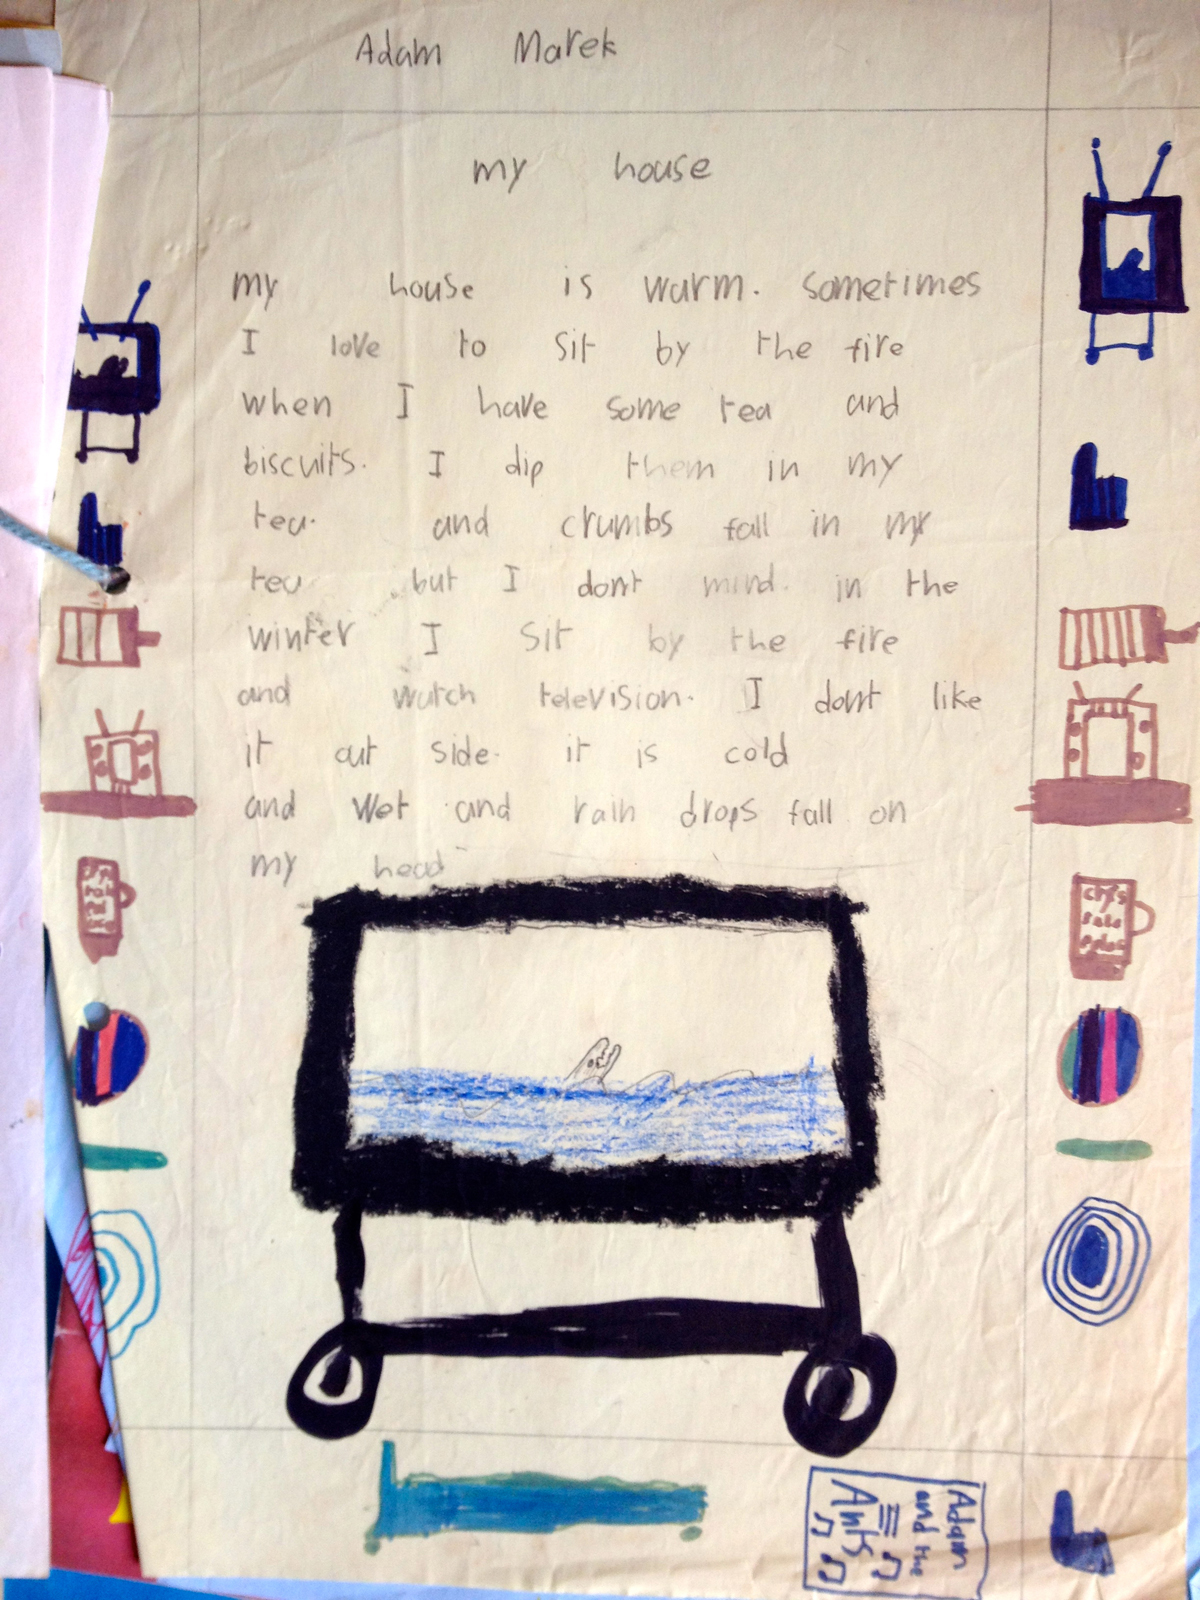 Adam Marek
my house
my house is warm. sometimes
I love to sit by the fire
when I have some tea and
biscuits. I dip them in my
tea. and crumbs fall in my
tea but I dont mind. in the
winter I sit by the fire
and watch television. I dont like
it out side. it is cold
and wet and rain drops fall on
my head
Adam
and the
Ants